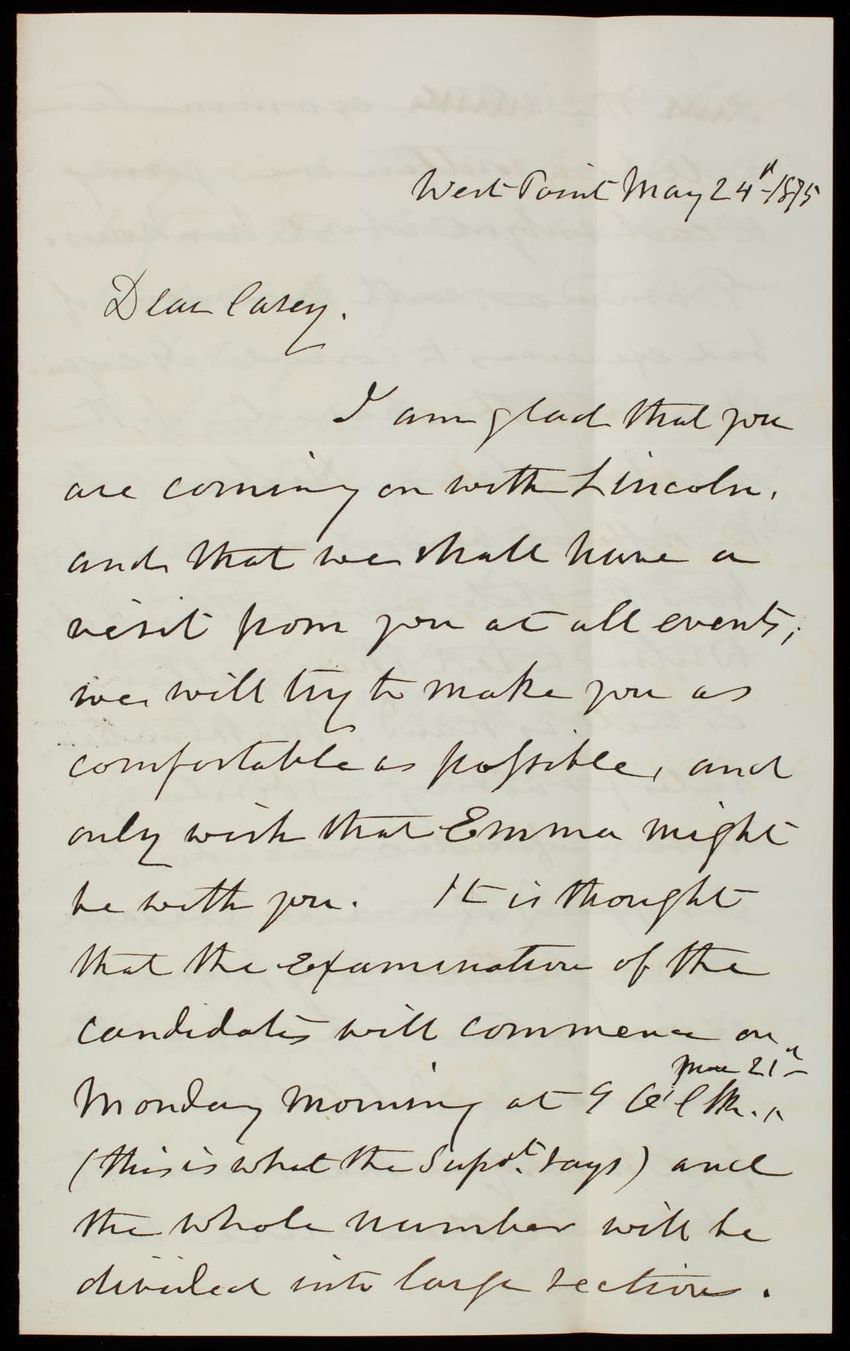 West Point May 24th 1875
Dear Casey.
I am glad that you
are coming on with Lincoln,
and that we shall have a
visit from you at all events;
we will try to make you as
comfortable as possible, and
only wish that Emma might
be with you. It is thought
that the Examination of the
candidates will commence on
June 21st
Monday morning at 9 O'Clk.,
(this is what the Supdt. says) and
the whole number will be
divided into large sections.